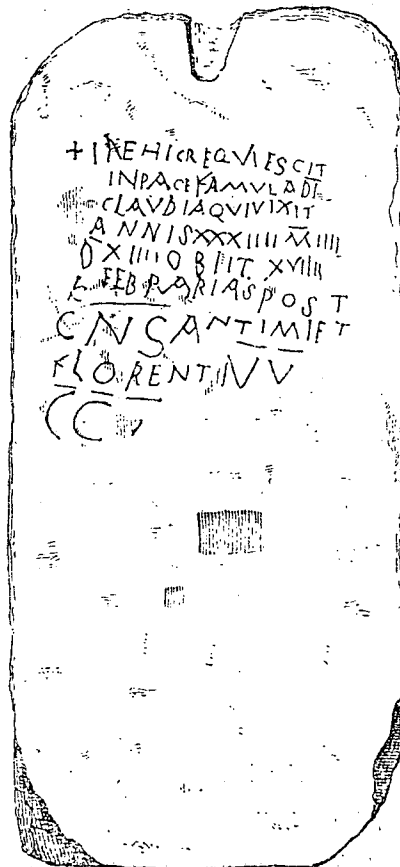 + I N E HIC REQVIESCIT
IN PACE FAMVLA DI
CLAVDIA QVI VIXIT
ANNIS XXXIIII M IIII
D XIIII OBIIT XVIIII
K FEBRARIAS POST
CNS ANTIMI ET
FLORENTINI V V
C C